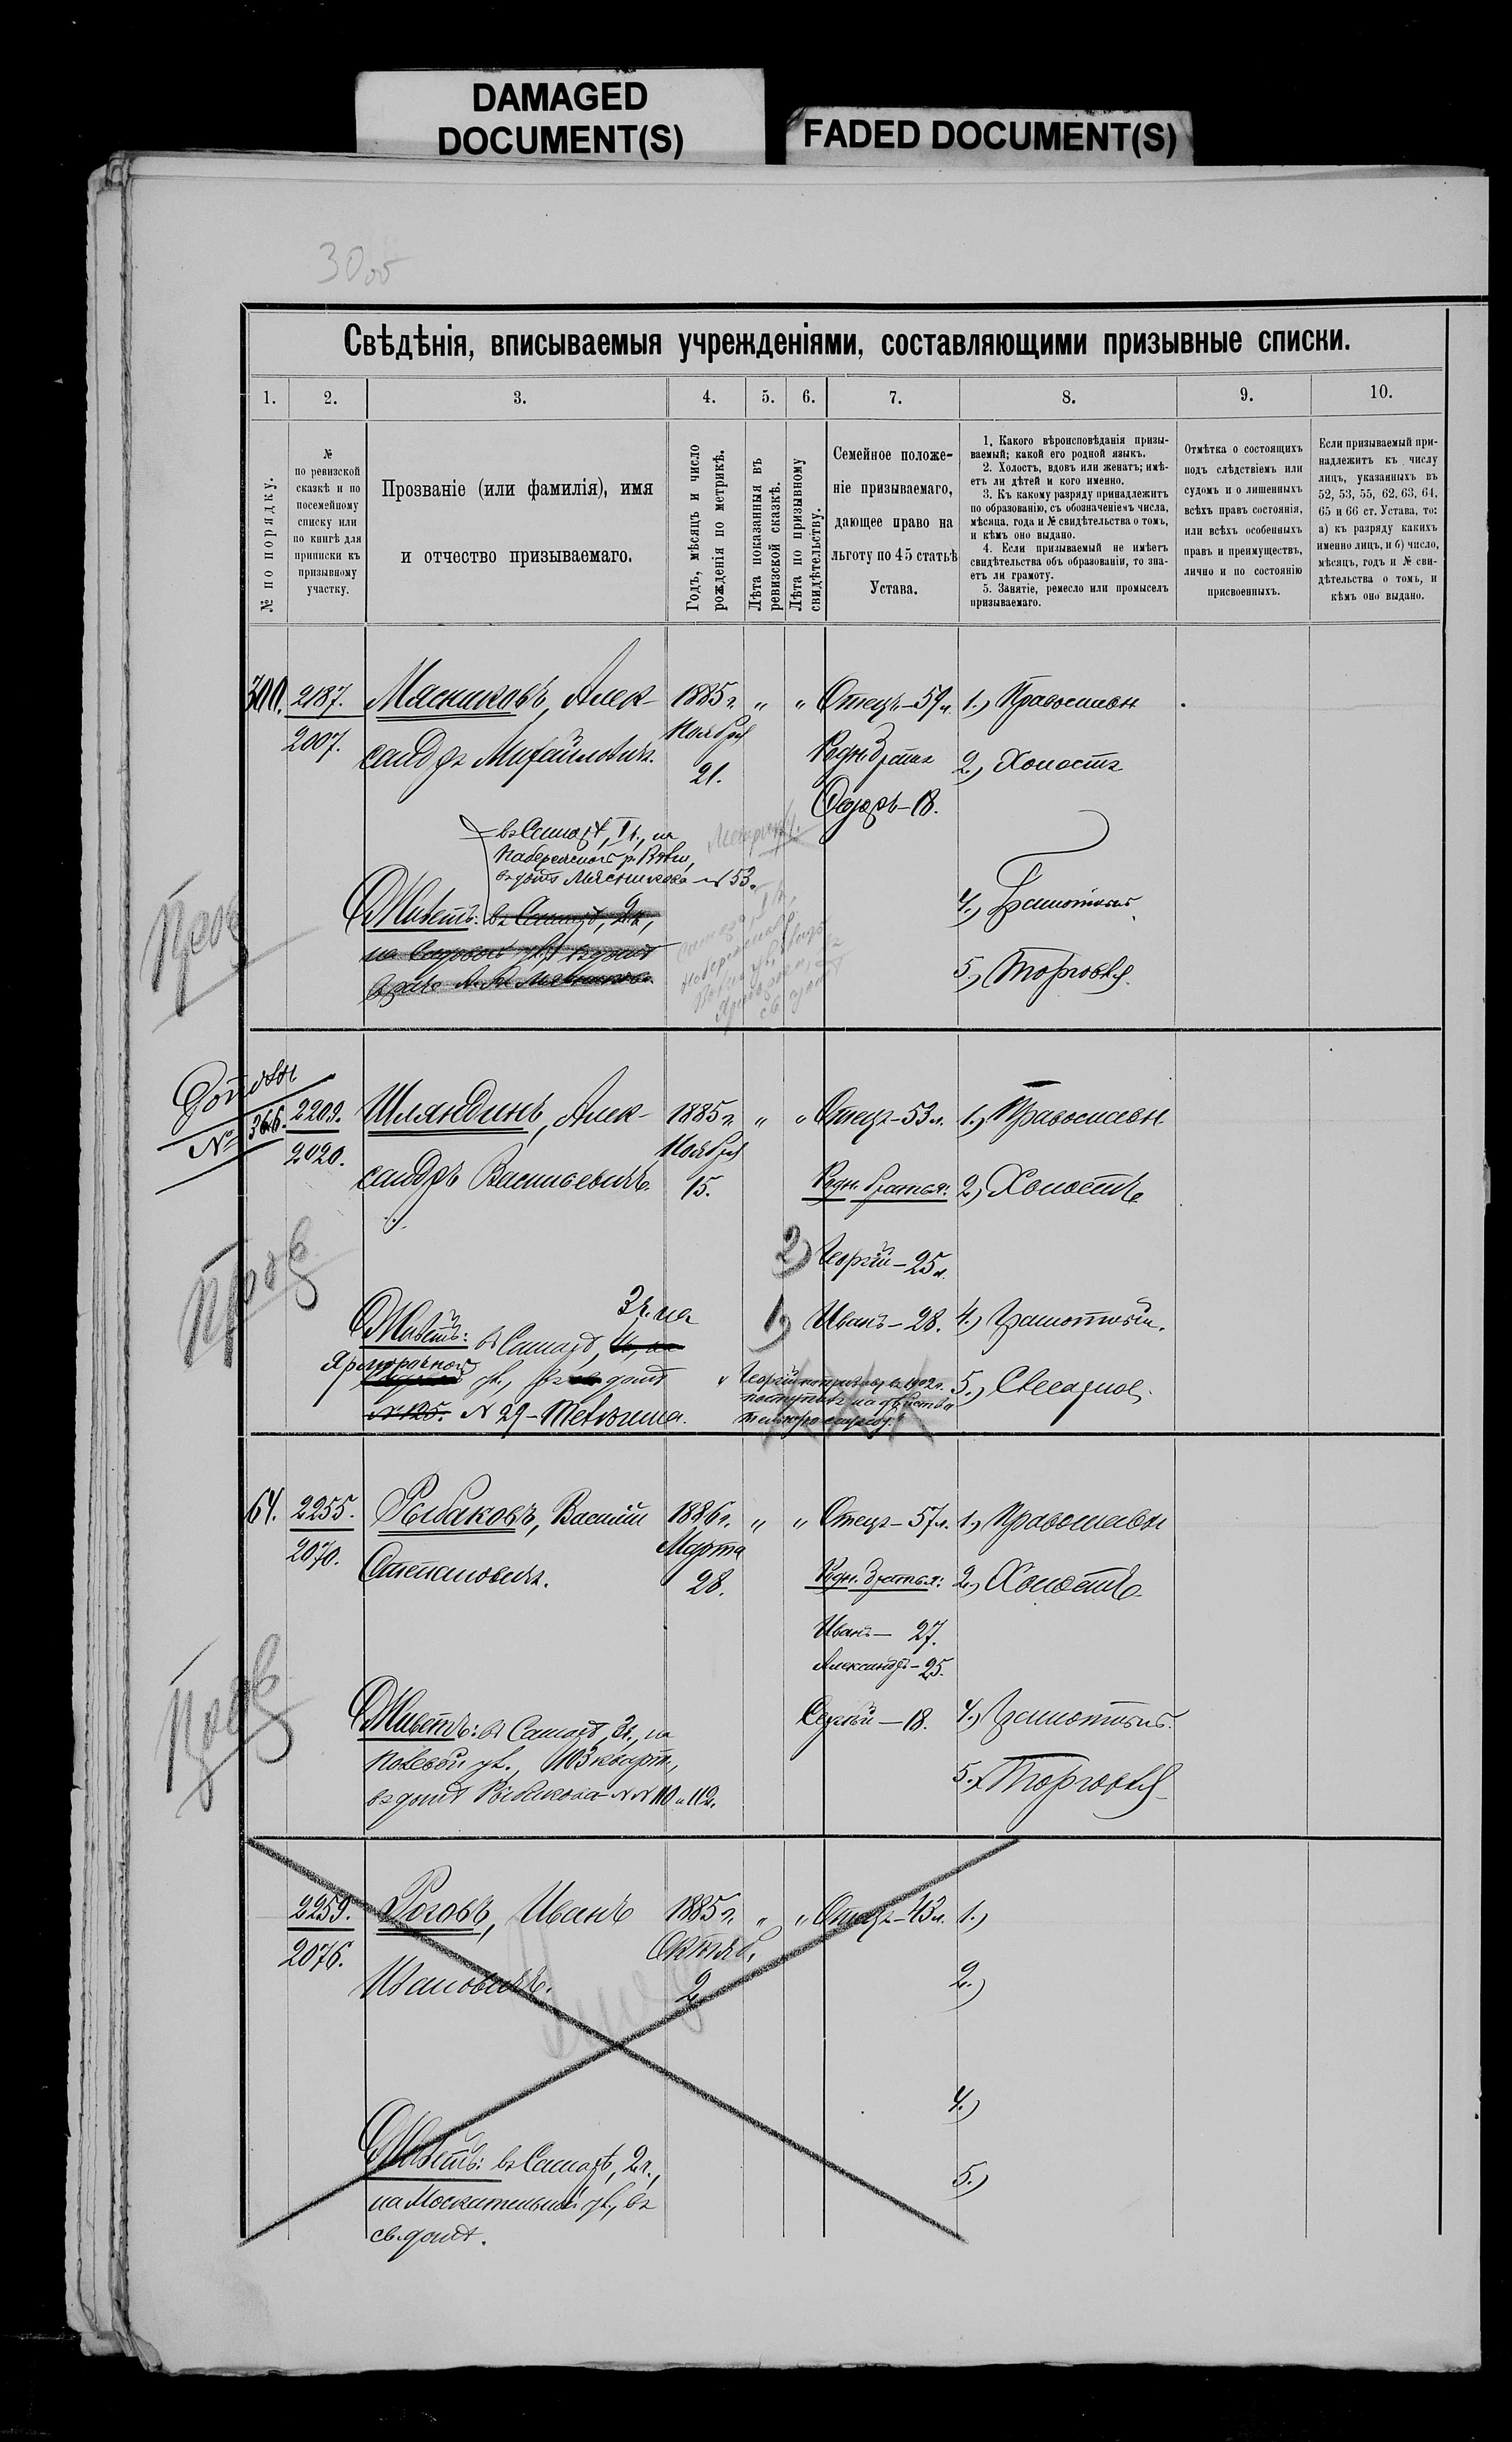 DAMAGED
DOCUMENT(S)
FADED DOCUMENT(S)
30 об
Свѣдѣнія, вписываемыя учрежденіями, составляющими призывные списки.
1.
2.
3.
4.
5.
6.
7.
8.
9.
10.
№ по порядку.
№
по ревизской
сказкѣ и по
посемейному
списку или
по книгѣ для
приписки къ
призывному
участку.
Прозваніе (или фамилія), имя
и отчество призываемаго.
Годъ, мѣсяцъ и число
рожденія по метрикѣ.
Лѣта показанныя въ
ревизской сказкѣ.
Лѣта по призывному
свидѣтельству.
Семейное положе-
ніе призываемаго,
дающее право на
льготу по 45 статьѣ
Устава.
1. Какого вѣроисповѣданія призы-
ваемый; какой его родной языкъ.
2. Холостъ, вдовъ или женатъ; имѣ-
етъ ли дѣтей и кого именно.
3. Къ какому разряду принадлежитъ
по образованію, съ обозначеніемъ числа,
мѣсяца, года и № свидѣтельства о томъ,
и кѣмъ оно выдано.
4. Если призываемый не имѣетъ
свидѣтельства объ образованіи, то зна-
етъ ли грамоту.
5. Занятіе, ремесло или промыселъ
призываемаго.
Отмѣтка о состоящихъ
подъ слѣдствіемъ или
судомъ и о лишенныхъ
всѣхъ правъ состоянія,
или всѣхъ особенныхъ
правъ и преимуществъ,
лично и по состоянію
присвоенныхъ.
Если призываемый при-
надлежитъ къ числу
лицъ, указанныхъ въ
52, 53, 55, 62, 63, 64,
65 и 66 ст. Устава, то:
а) къ разряду какихъ
именно лицъ, и б) число,
мѣсяцъ, годъ и № сви-
дѣтельства о томъ, и
кѣмъ оно выдано.
300. 2187. Мясниковъ, Алек- 1885 г. " " Отецъ-59 л. 1.) Православн
2007. сандръ Михайловичъ. Ноября 21. Родн. братъ 2.) Холостъ
Федоръ-18.
въ Самарѣ, I ч., на
Набережной р. Волги,
въ домѣ Мясникова №53.
Живетъ: въ Самарѣ, 2 ч.,
4.) Грамотный
5.) Торговля.
№ 366. 2209. Шляндинъ, Алек- 1885 г. " " Отецъ-53 л. 1.) Православн
2020. сандръ Васильевичъ. Ноября 15. Родн. братья: 2.) Холостъ
2) Георгій-25 л.
1) Иванъ-28. 4.) Грамотный.
Живетъ: въ Самарѣ, 3 ч. на
Ярморочной ул., въ домѣ
№ 125. № 29-
Георгій по призыву въ 1902 г.
поступилъ на дѣйстви
тельную службу.
5.) Слесарное.
64. 2255. Рыбаковъ, Василій 1886 г. " " Отецъ-57 л. 1.) Православн
2070. Степановичъ. Марта 28. Родн. братья: 2.) Холостъ
Иванъ- 27.
Александръ-25.
Сергѣй-18. 4.) Грамотный.
Живетъ: въ Самарѣ, 3 ч., на
Полевой ул., 103 кварт.,
въ домѣ Рыбакова №№ 110 и 112.
5.) Торговля
2259. Роговъ, Иванъ 1885 г. " " Отецъ-43 л. 1.)
2076. Ивановичъ. Октяб. 2 2.)
4.)
Живетъ: въ Самарѣ, 2 ч.,
на Москательной ул., въ
св. домѣ.
5.)